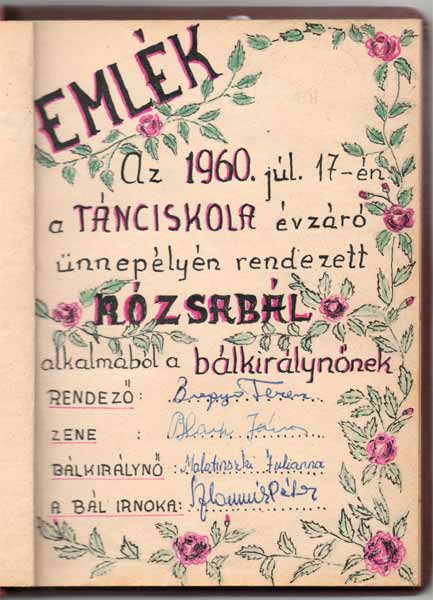 EMLÉK
Az 1960. júl. 17-én
a TÁNCISKOLA évzáró
ünnepélyén rendezett
RÓZSABÁL
alkalmából a bálkirálynőnek
RENDEZŐ:
ZENE :
BÁLKIRÁLYNŐ : Malatinszki Julianna
A BÁL IRNOKA: